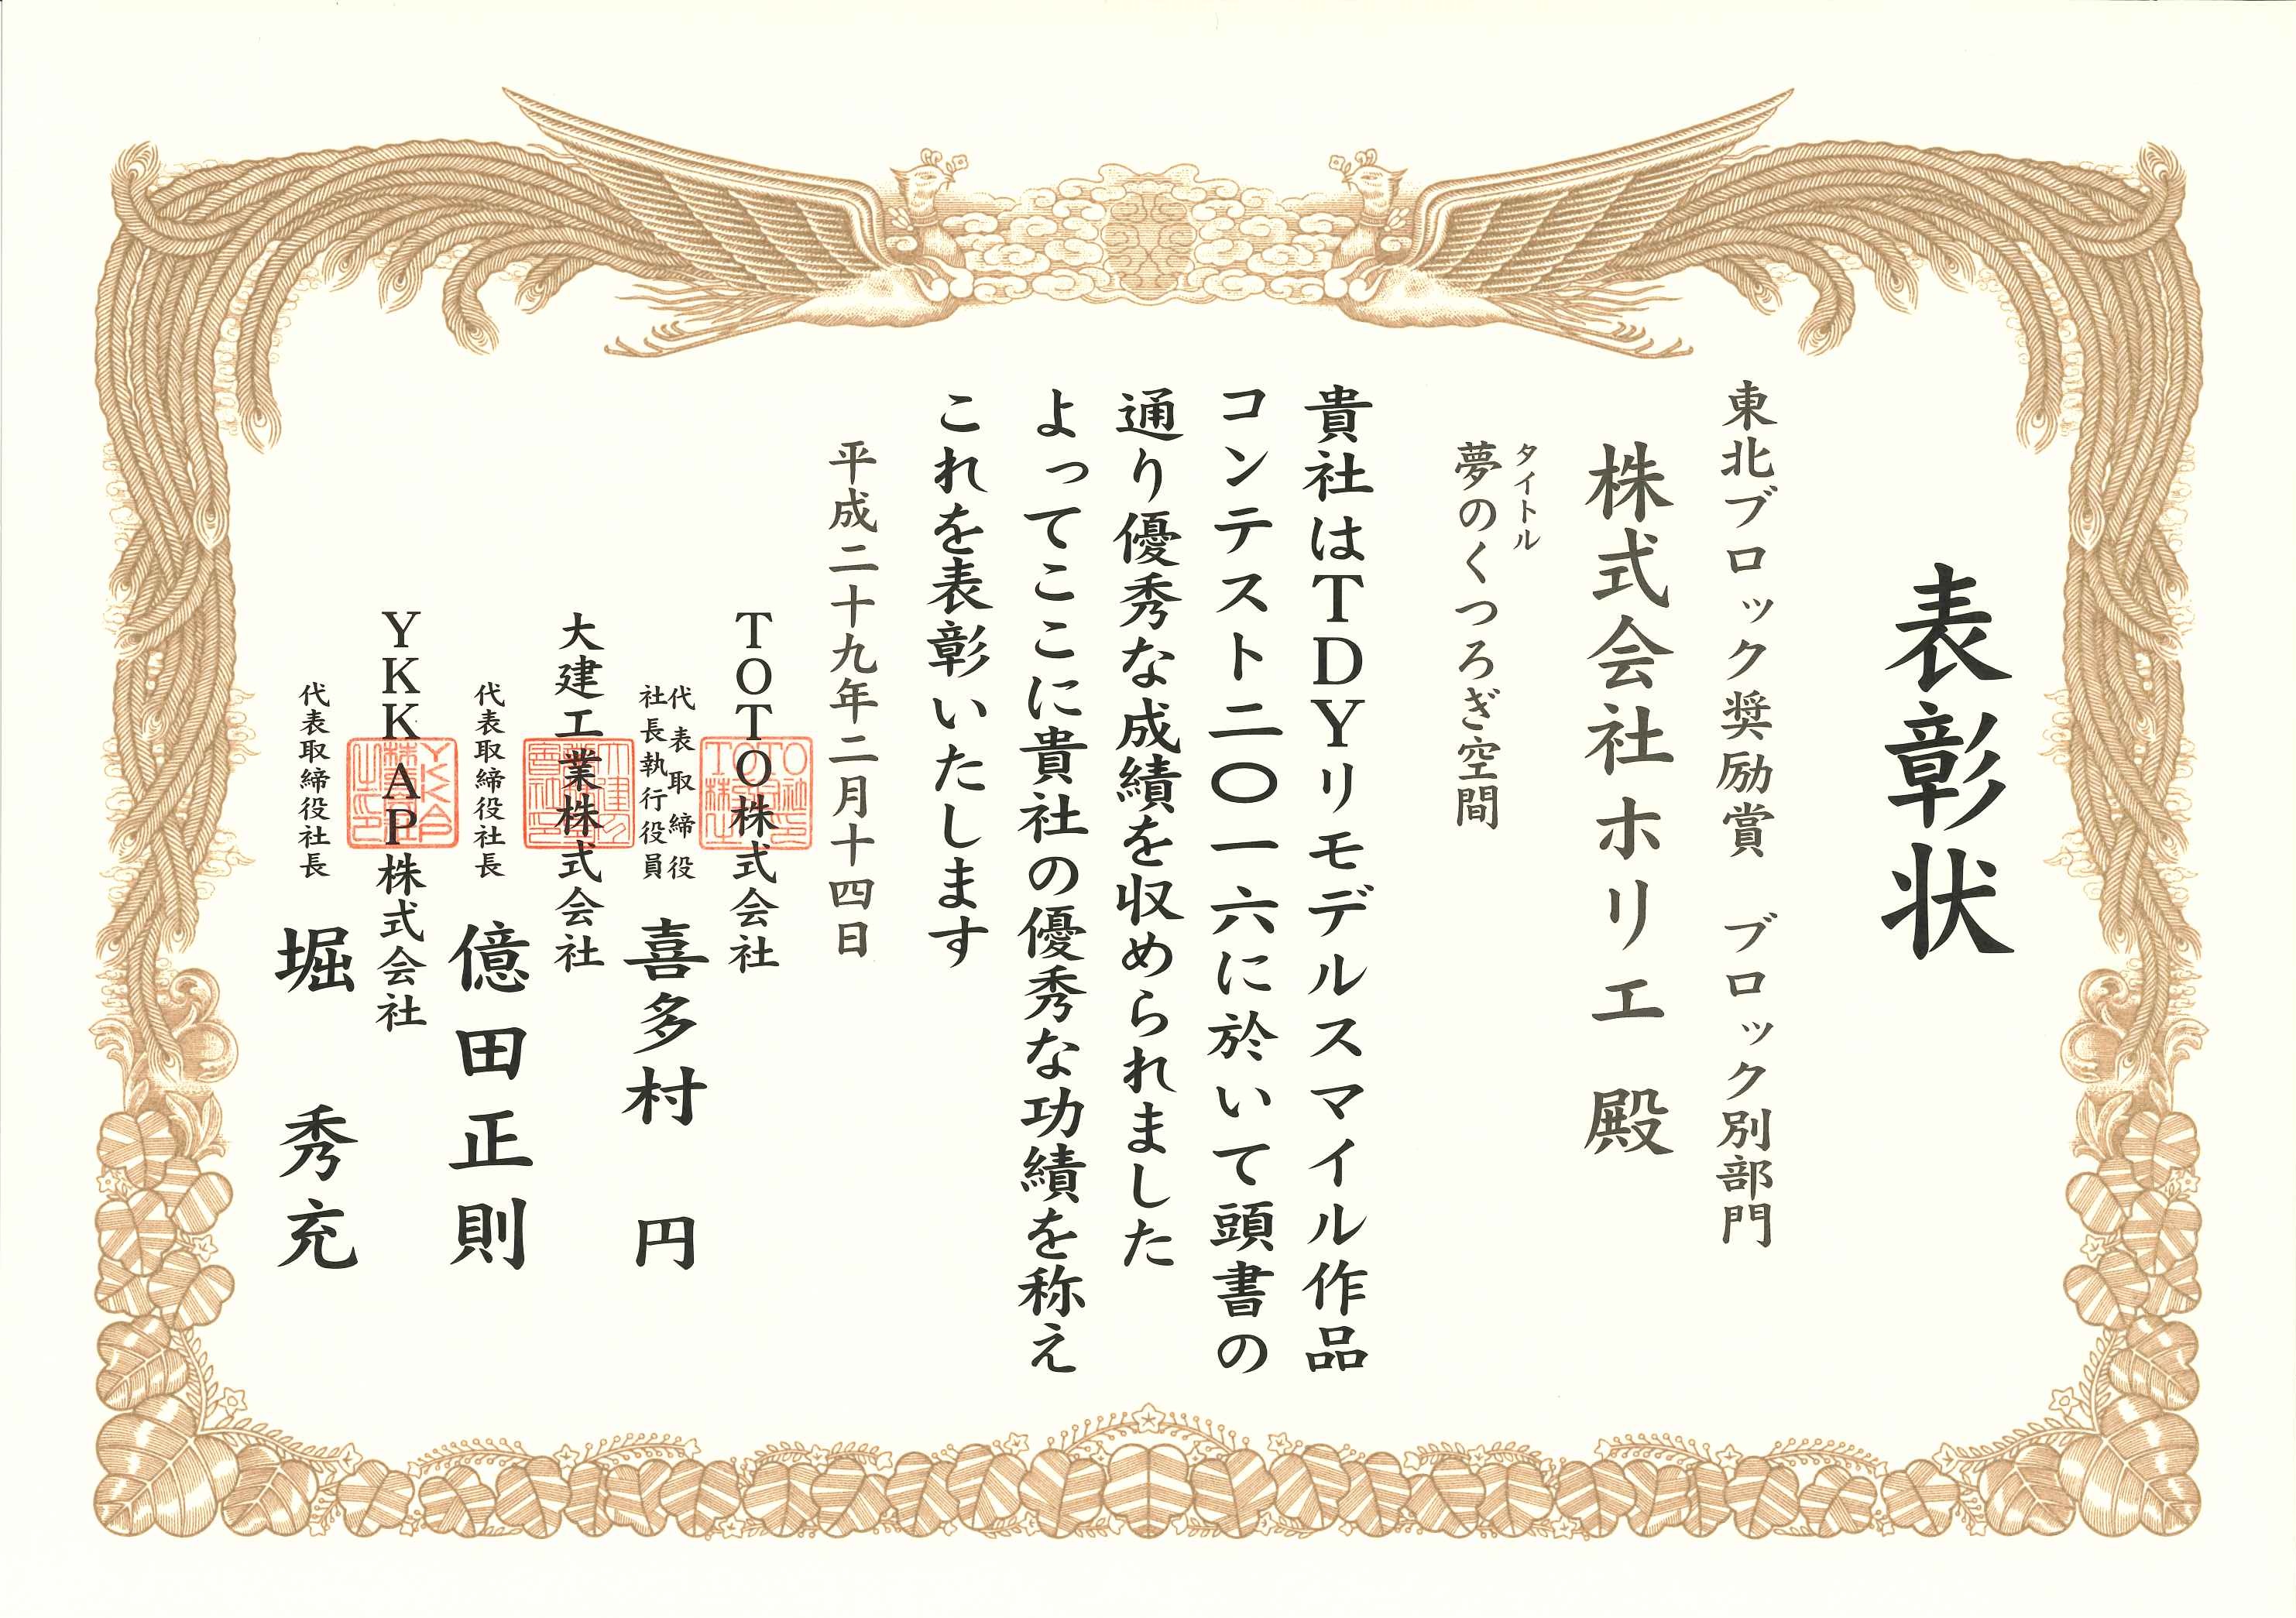 表彰状
東北ブロック奨励賞　ブロック別部門
株式会社ホリエ　殿
タイトル
夢のくつろぎ空間
貴社はTDYリモデルスマイル作品
コンテスト二〇一六に於いて頭書の
通り優秀な成績を収められました
よってここに貴社の優秀な功績を称え
これを表彰いたします
平成二十九年二月十四日
TOTO株式会社
代表取締役
社長執行役員
喜多村　円
大建工業株式会社
代表取締役社長　億田正則
YKK AP株式会社
代表取締役社長　堀　秀充